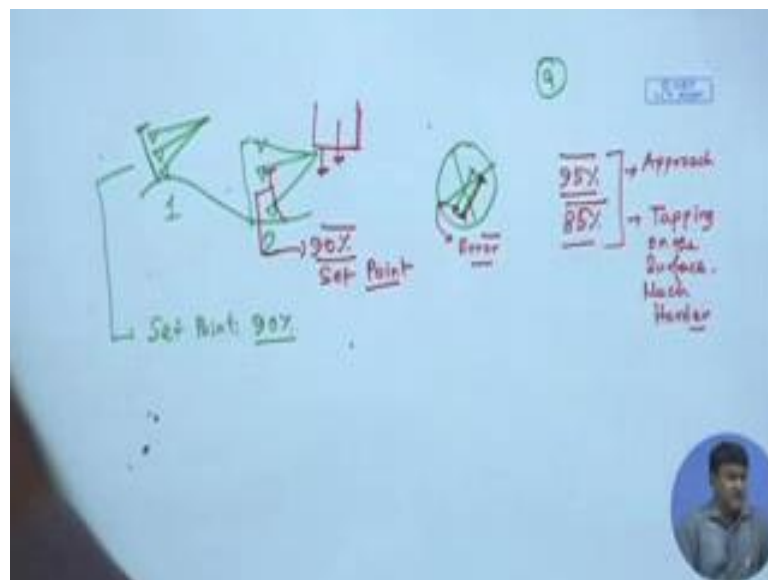 1
2
90%
Set Point
Set Point: 90%
Error
95%
85%
→ Approach
→ Tapping
on the
Surface.
Much
Harder